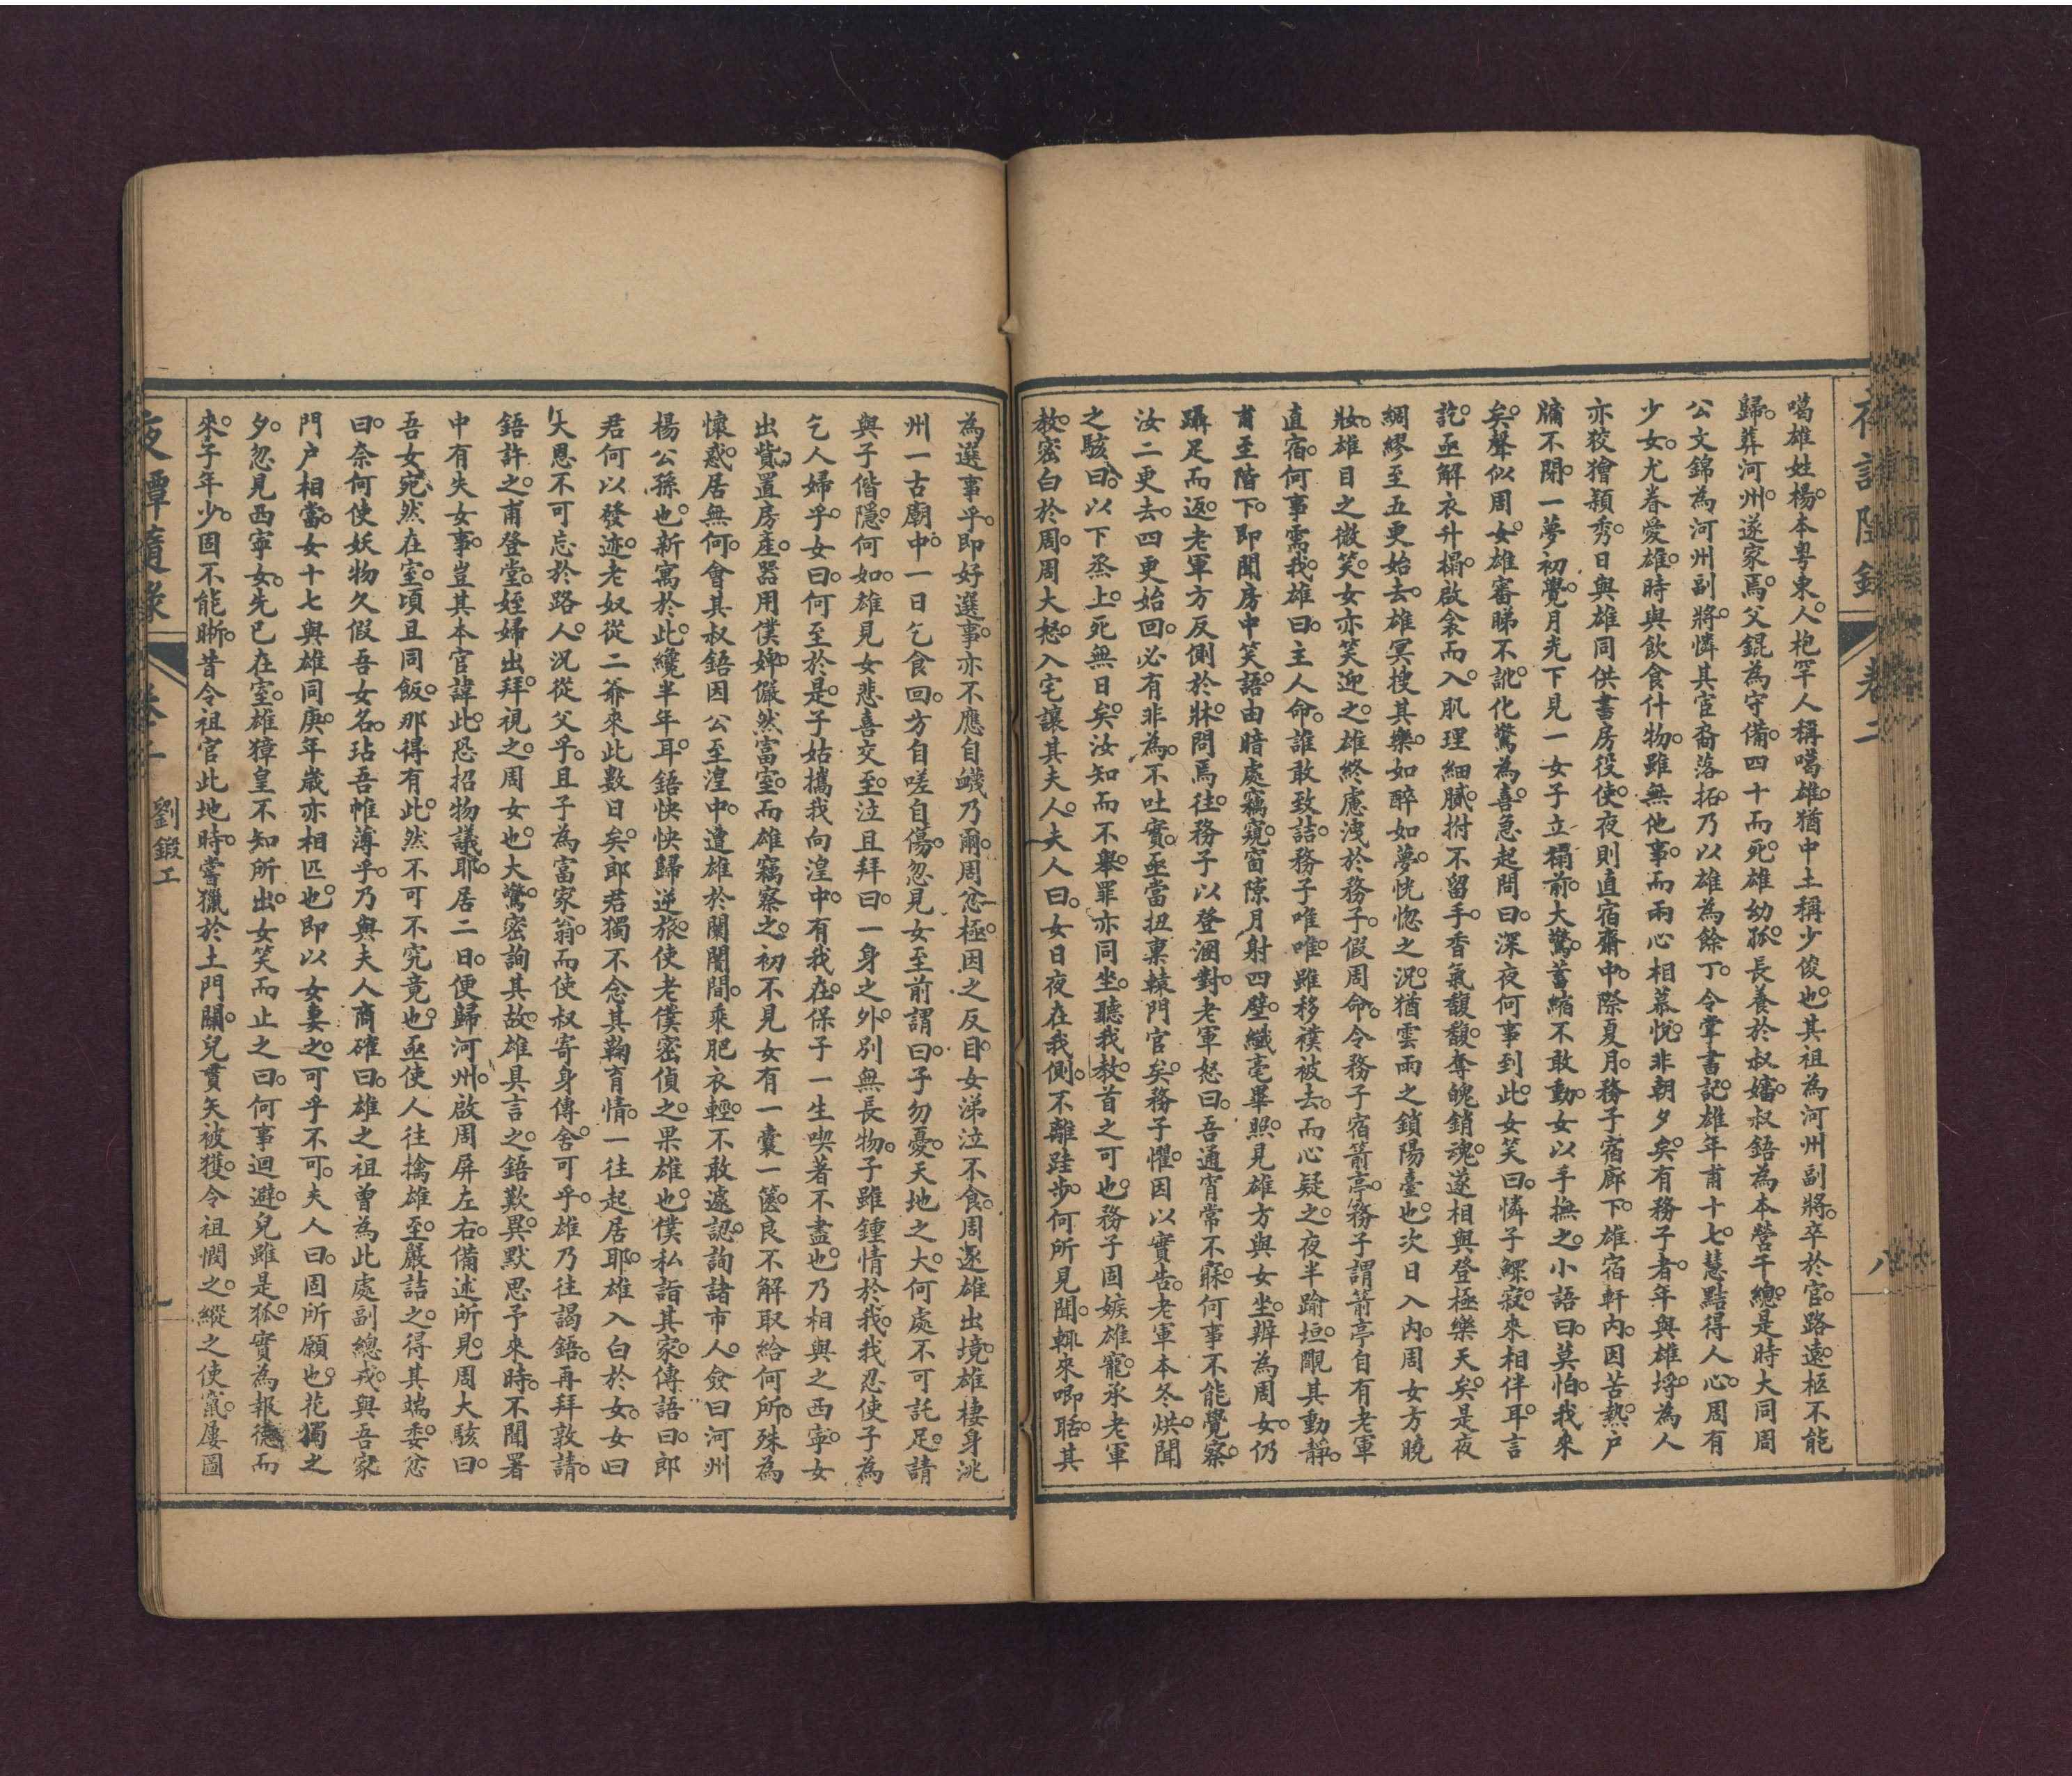 夜譚隨錄 卷二 八
噶雄姓楊。本粤東人。枹罕人稱噶雄。猶中土稱少俊也。其祖為河州副將。卒於官。路遠。柩不能
歸。葬河州。遂家焉。父錕為守備。四十而死。雄幼孤。長養於叔嬸。叔鋙為本營千總。是時大同周
公文錦為河州副將。憐其宦裔落拓。乃以雄為餘丁。令掌書記。雄年甫十七。慧黠得人心。周有
少女。尤眷愛雄。時與飲食什物。雖無他事。而兩心相慕悅。非朝夕矣。有務子者。年與雄埒。為人
亦狡獪穎秀。日與雄同供書房役使。夜則直宿齋中。際夏月。務子宿廊下。雄宿軒內。因苦熱。户
牖不閉。一夢初覺。月光下見一女子立榻前。大驚。蓄縮不敢動。女以手撫之。小語曰。莫怕。我來
矣。聲似周女。雄審睇不訛。化驚為喜。急起問曰。深夜何事到此。女笑曰。憐子鰥寂。來相伴耳。言
訖。亟解衣升榻。啟衾而入。肌理細膩。拊不留手。香氣馥馥。奪魄銷魂。遂相與登極樂天矣。是夜
綢繆至五更始去。雄冥搜其樂。如醉如夢。恍惚之況。猶雲雨之鎖陽臺也。次日入內。周女方曉
妝。雄目之微笑。女亦笑迎之。雄終慮洩於務子。假周命。令務子宿箭亭。務子謂箭亭自有老軍
直宿。何事需我。雄曰。主人命。誰敢致詰。務子唯唯。雖移襆被去。而心疑之。夜半踰垣。覸其動靜。
甫至階下。即聞房中笑語。由暗處竊窺。窗隙月射四壁。纖毫畢照。見雄方與女坐。辨為周女。仍
躡足而返。老軍方反側於牀。問焉往。務子以登溷對。老軍怒曰。吾通宵常不寐。何事不能覺察。
汝二更去。四更始回。必有非為。不吐實。亟當扭稟轅門官矣。務子懼。因以實告。老軍本冬烘。聞
之駭曰。以下烝上。死無日矣。汝知而不舉。罪亦同坐。聽我教。首之可也。務子固嫉雄寵。承老軍
教。密白於周。周大怒。入宅讓其夫人。夫人曰。女日夜在我側。不離跬步。何所見聞。輒來唧聒。其
為選事乎。即好選事。亦不應自衊乃爾。周忿極。因之反目。女涕泣不食。周遂雄出境。雄棲身洮
州一古廟中。一日乞食回。方自嗟自傷。忽見女至前。謂曰。子勿憂。天地之大。何處不可託足。請
與子偕隱。何如。雄見女。悲喜交至。泣且拜曰。一身之外。別無長物。子雖鍾情於我。我忍使子為
乞人婦乎。女曰。何至於是。子姑攜我向湟中。有我在。保子一生喫著不盡也。乃相與之西寧。女
出貲。置房產。器用僕婢。儼然富室。而雄竊察之。初不見女有一囊一篋。良不解取給何所。殊為
懷惑。居無何。會其叔鋙因公至湟中。遭雄於闤闠間。乘肥衣輕。不敢遽認。詢諸市人。僉曰河州
楊公孫也。新寓於此。纔半年耳。鋙怏怏歸逆旅。使老僕密偵之。果雄也。僕私詣其家。傳語曰。郎
君何以發迹。老奴從二爺來此數日矣。郎君獨不念其鞠育情。一往起居耶。雄入白於女。女曰
大恩不可忘於路人。況從父乎。且子為富家翁。而使叔寄身傳舍。可乎。雄乃往謁鋙。再拜敦請。
鋙許之。甫登堂。姪婦出拜。視之。周女也。大驚。密詢其故。雄具言之。鋙歎異。默思予來時。不聞署
中有失女事。豈其本官諱此。恐招物議耶。居二日。便歸河州。啟周屏左右。備述所見。周大駭曰。
吾女宛然在室。頃且同飯。那得有此。然不可不究竟也。亟使人往擒雄至。嚴詰之。得其端委。忿
曰。奈何使妖物久假吾女名。玷吾帷薄乎。乃與夫人商確曰。雄之祖曾為此處副總戎。與吾家
門户相當。女十七與雄同庚。年歲亦相匹也。即以女妻之。可乎不可。夫人曰。固所願也。花燭之
夕。忽見西寧女。先已在室。雄獐皇不知所出。女笑而止之曰。何事迴避。兒雖是狐。實為報德而
來。子年少。固不能晰。昔令祖官此地時。嘗獵於土門關。兒貫矢被獲。令祖憫之。縱之使竄。屢圖
夜譚隨錄 卷二 劉鍛工